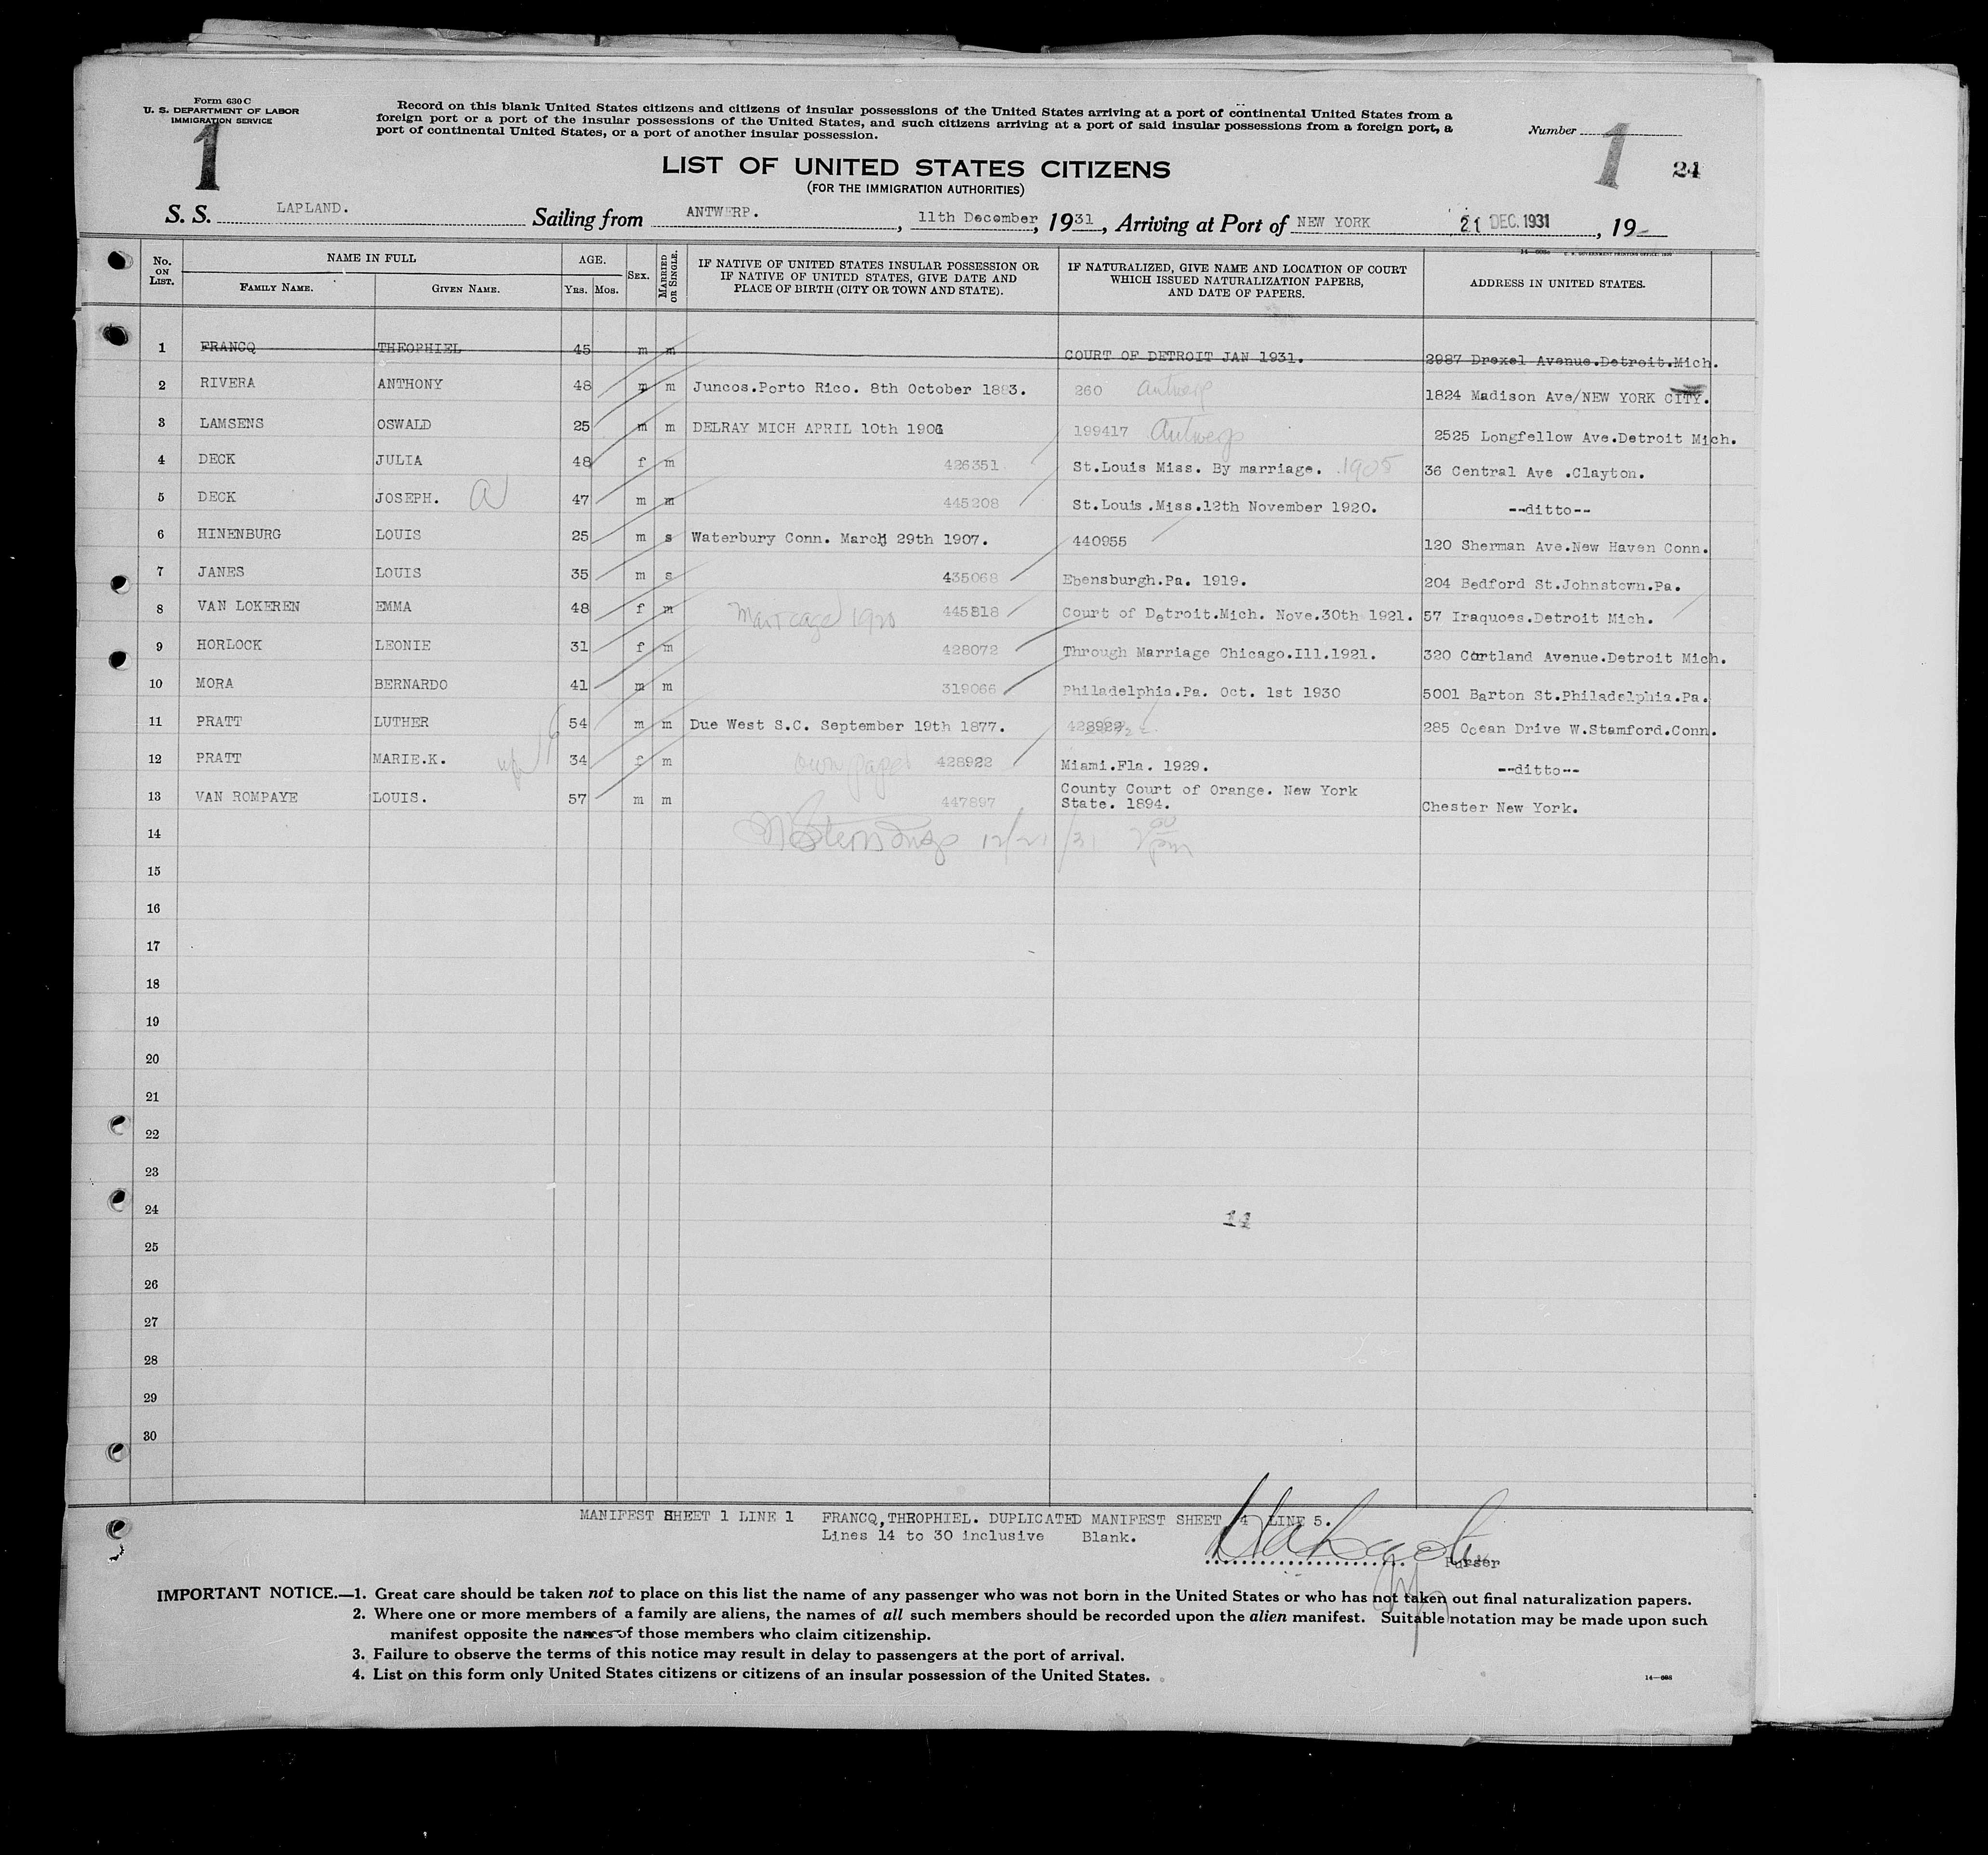 Form 630 C
U. S. DEPARTMENT OF LABOR
IMMIGRATION SERVICE
1
Record on this blank United States citizens and citizens of insular possessions of the United States arriving at a port of continental United States from a
foreign port or a port of the insular possessions of the United States, and such citizens arriving at a port of said insular possessions from a foreign port, a
port of continental United States, or a port of another insular possession.
Number
1
24
LIST OF UNITED STATES CITIZENS
(FOR THE IMMIGRATION AUTHORITIES)
S. S. LAPLAND. Sailing from ANTWERP. , 11th December, 1931, Arriving at Port of NEW YORK 21 DEC. 1931, 19
No. ON LIST.
NAME IN FULL
FAMILY NAME.
GIVEN NAME.
AGE.
YRS. MOS.
SEX.
MARRIED OR SINGLE.
IF NATIVE OF UNITED STATES INSULAR POSSESSION OR
IF NATIVE OF UNITED STATES, GIVE DATE AND
PLACE OF BIRTH (CITY OR TOWN AND STATE).
IF NATURALIZED, GIVE NAME AND LOCATION OF COURT
WHICH ISSUED NATURALIZATION PAPERS,
AND DATE OF PAPERS.
ADDRESS IN UNITED STATES.
1 FRANCQ THEOPHIEL 45 m m COURT OF DETROIT JAN 1931. 2987 Drexel Avenue.Detroit.Mich.
2 RIVERA ANTHONY 48 m m Juncos.Porto Rico. 8th October 1883. 260 Antwerp 1824 Madison Ave/NEW YORK CITY.
3 LAMSENS OSWALD 25 m m DELRAY MICH APRIL 10th 1906 199417 Antwerp 2525 Longfellow Ave.Detroit Mich.
4 DECK JULIA 48 f m 426351 St.Louis Miss. By marriage. 1905 36 Central Ave .Clayton.
5 DECK JOSEPH. 47 m m 445208 St.Louis.Miss.12th November 1920. --ditto--
6 HINENBURG LOUIS 25 m s Waterbury Conn. March 29th 1907. 440955 120 Sherman Ave.New Haven Conn.
7 JANES LOUIS 35 m s 435068 Ebensburgh.Pa. 1919. 204 Bedford St.Johnstown.Pa.
8 VAN LOKEREN EMMA 48 f m Marriage 1920 445818 Court of Detroit.Mich. Nove.30th 1921. 57 Iraquoes.Detroit Mich.
9 HORLOCK LEONIE 31 f m 428072 Through Marriage Chicago.Ill.1921. 320 Cortland Avenue.Detroit Mich.
10 MORA BERNARDO 41 m m 319066 Philadelphia.Pa. Oct. 1st 1930 5001 Barton St.Philadelphia.Pa.
11 PRATT LUTHER 54 m m Due West S.C. September 19th 1877. 428922 285 Ocean Drive W.Stamford.Conn.
12 PRATT MARIE.K. wife 34 f m own paper 428922 Miami.Fla. 1929. --ditto--
13 VAN ROMPAYE LOUIS. 57 m m 447897 County Court of Orange. New York
State. 1894. Chester New York.
14 12/21/31 2 00 pm
15
16
17
18
19
20
21
22
23
24
25
26
27
28
29
30
14
MANIFEST SHEET 1 LINE 1 FRANCQ,THEOPHIEL. DUPLICATED MANIFEST SHEET 4 LINE 5.
Lines 14 to 30 inclusive Blank.
Purser
IMPORTANT NOTICE.—1. Great care should be taken not to place on this list the name of any passenger who was not born in the United States or who has not taken out final naturalization papers.
2. Where one or more members of a family are aliens, the names of all such members should be recorded upon the alien manifest. Suitable notation may be made upon such
manifest opposite the names of those members who claim citizenship.
3. Failure to observe the terms of this notice may result in delay to passengers at the port of arrival.
4. List on this form only United States citizens or citizens of an insular possession of the United States.
14—698